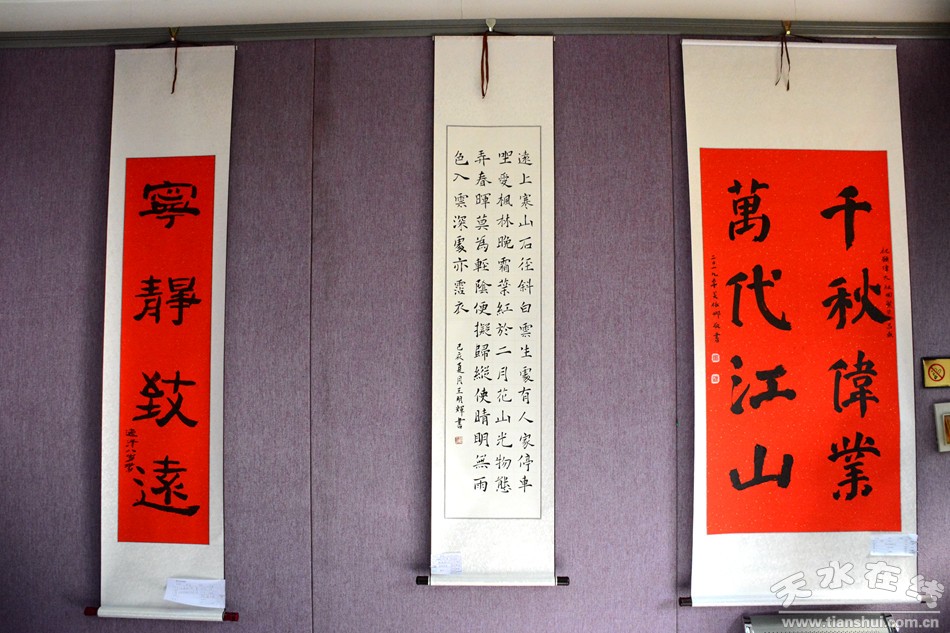 寧靜致遠
遠上寒山石径斜白雲生處有人家停車
坐愛楓林晚霜葉紅於二月花山光物態
弄春暉莫為輕陰便擬歸縱使晴明無雨
色入雲深處亦霑衣
己亥夏月王明輝書
千秋偉業
萬代江山
天水在线
www.tianshui.com.cn